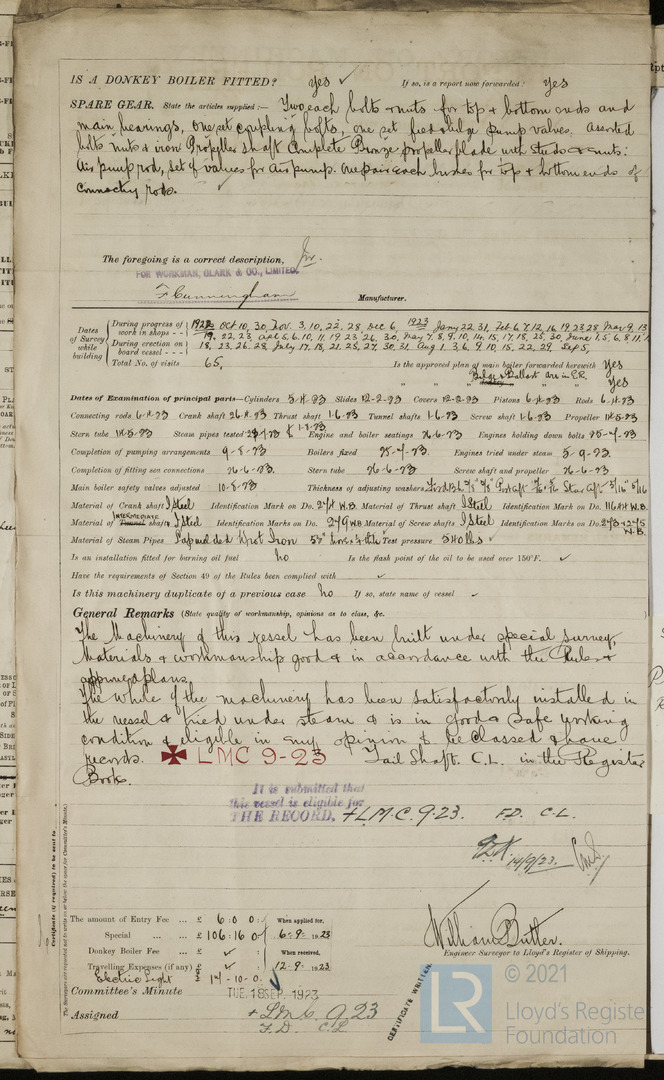 IS A DONKEY BOILER FITTED? Yes ✓ If so, is a report now forwarded? Yes
SPARE GEAR. State the articles supplied:— Two each bolts & nuts for top & bottom ends and
main bearings, one set coupling bolts, one set feed & bilge pump valves. Assorted
bolts nuts & iron Propeller shaft Complete Bronze propeller blade with studs & nuts.
Air pump rod, set of valves for Air pump. One pair each bushes for top & bottom ends of
connecting rods. ✓
The foregoing is a correct description,
FOR WORKMAN, CLARK & CO., LIMITED.
F Cunningham Manufacturer.
Dates of Survey while building
During progress of work in shops - - 1922 Oct 10, 30, Nov. 3, 10, 22, 28, Dec 6, 1923 Jany 22, 31, Feb 6, 7, 12, 16, 19, 23, 28, Mar 9, 13
19, 22, 23, Apl 5, 6, 10, 11, 19, 23, 26, 30, May 7, 8, 9, 10, 14, 15, 17, 18, 25, 30, June 1, 5, 6, 8, 11
During erection on board vessel - - - 18, 23, 26, 28, July 17, 18, 21, 25, 27, 30, 31, Aug 1, 3, 6, 9, 10, 15, 22, 29, Sep 5,
Total No. of visits 65, Is the approved plan of main boiler forwarded herewith Yes
" " " Bilge & Ballast are in E.R. " " Yes
Dates of Examination of principal parts—Cylinders 5-4-23 Slides 12-2-23 Covers 12-2-23 Pistons 6-4-23 Rods 6-4-23
Connecting rods 6-4-23 Crank shaft 26-4-23 Thrust shaft 1-6-23 Tunnel shafts 1-6-23 Screw shaft 1-6-23 Propeller 14-5-23
Stern tube 14-5-23 Steam pipes tested & 1-8-23 Engine and boiler seatings 26-6-23 Engines holding down bolts 25-7-23
Completion of pumping arrangements 9-8-23 Boilers fixed 25-7-23. Engines tried under steam 5-9-23.
Completion of fitting sea connections 26-6-23. Stern tube 26-6-23 Screw shaft and propeller 26-6-23
Main boiler safety valves adjusted 10-8-23 Thickness of adjusting washers
Material of Crank shaft I Steel Identification Mark on Do. 274 W.B. Material of Thrust shaft I Steel Identification Mark on Do. 116 R.H W.B.
INTERMEDIATE
Material of Tunnel shafts I Steel Identification Marks on Do. 279 W.B Material of Screw shafts I Steel Identification Marks on Do. 273 & 275
W.B.
Material of Steam Pipes Lapwelded Wrot Iron Test pressure 540 lbs ✓
Is an installation fitted for burning oil fuel no Is the flash point of the oil to be used over 150°F. ✓
Have the requirements of Section 49 of the Rules been complied with ✓
Is this machinery duplicate of a previous case no If so, state name of vessel ✓
General Remarks (State quality of workmanship, opinions as to class, &c.
The Machinery of this vessel has been built under special survey,
Materials & workmanship good & in accordance with the Rules &
approved plans.
The whole of the machinery has been satisfactorily installed in
the vessel & tried under steam & is in good & safe working
condition & eligible in my opinion to be classed & have
records. ✠ LMC 9-23 Tail Shaft. C.L. in the Register
Book.
It is submitted that
this vessel is eligible for
THE RECORD. + L.M.C. 9.23. F.D. C.L.
14/9/23.
Certificate (if required) to be sent to
The Surveyors are requested not to write on or below the space for Committee's Minute.
The amount of Entry Fee ... £ 6 : 0 : 0 : When applied for,
Special ... ... £ 106 : 16 : 0 6-9-1923
Donkey Boiler Fee ... £ ✓ When received,
Travelling Expenses (if any) £ ✓ 12-9-1923
Electric Light £ 14-10-0.
William Butler.
Engineer Surveyor to Lloyd's Register of Shipping.
Committee's Minute TUE. 18 SEP. 1923
Assigned + L.M.C. 9.23
F.D. C.L
CERTIFICATE WRITTEN
LR © 2021
Lloyd's Register
Foundation